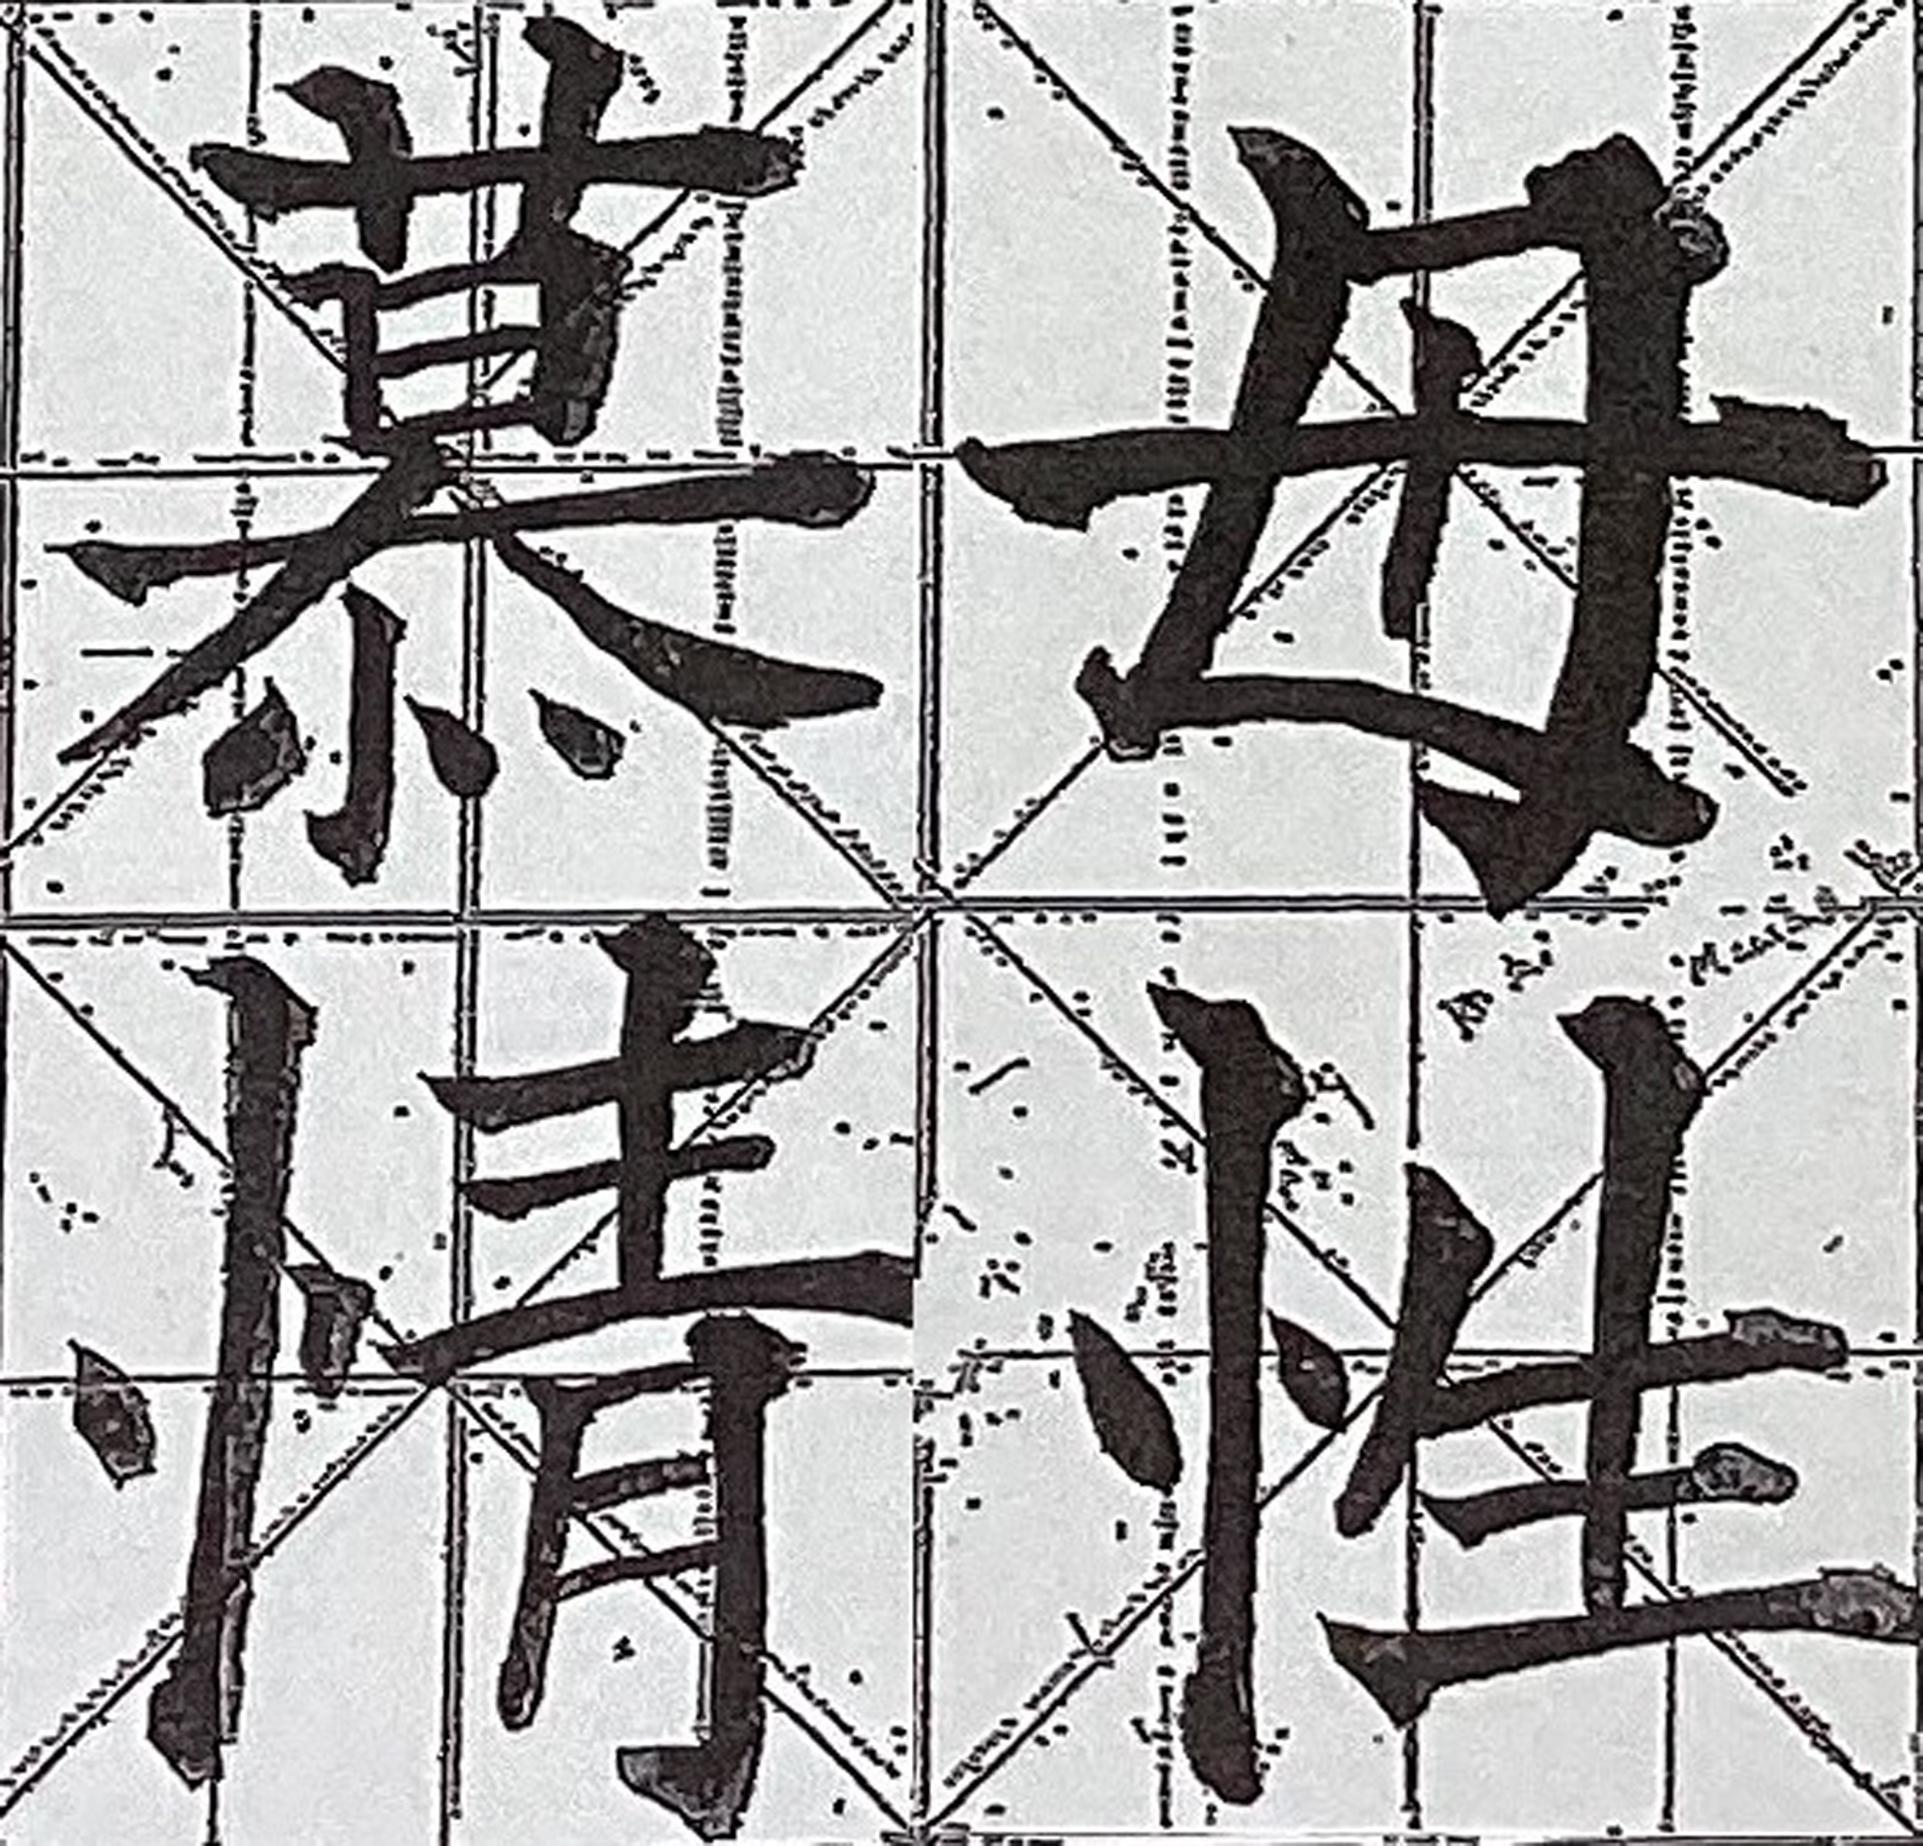 慕母
情性